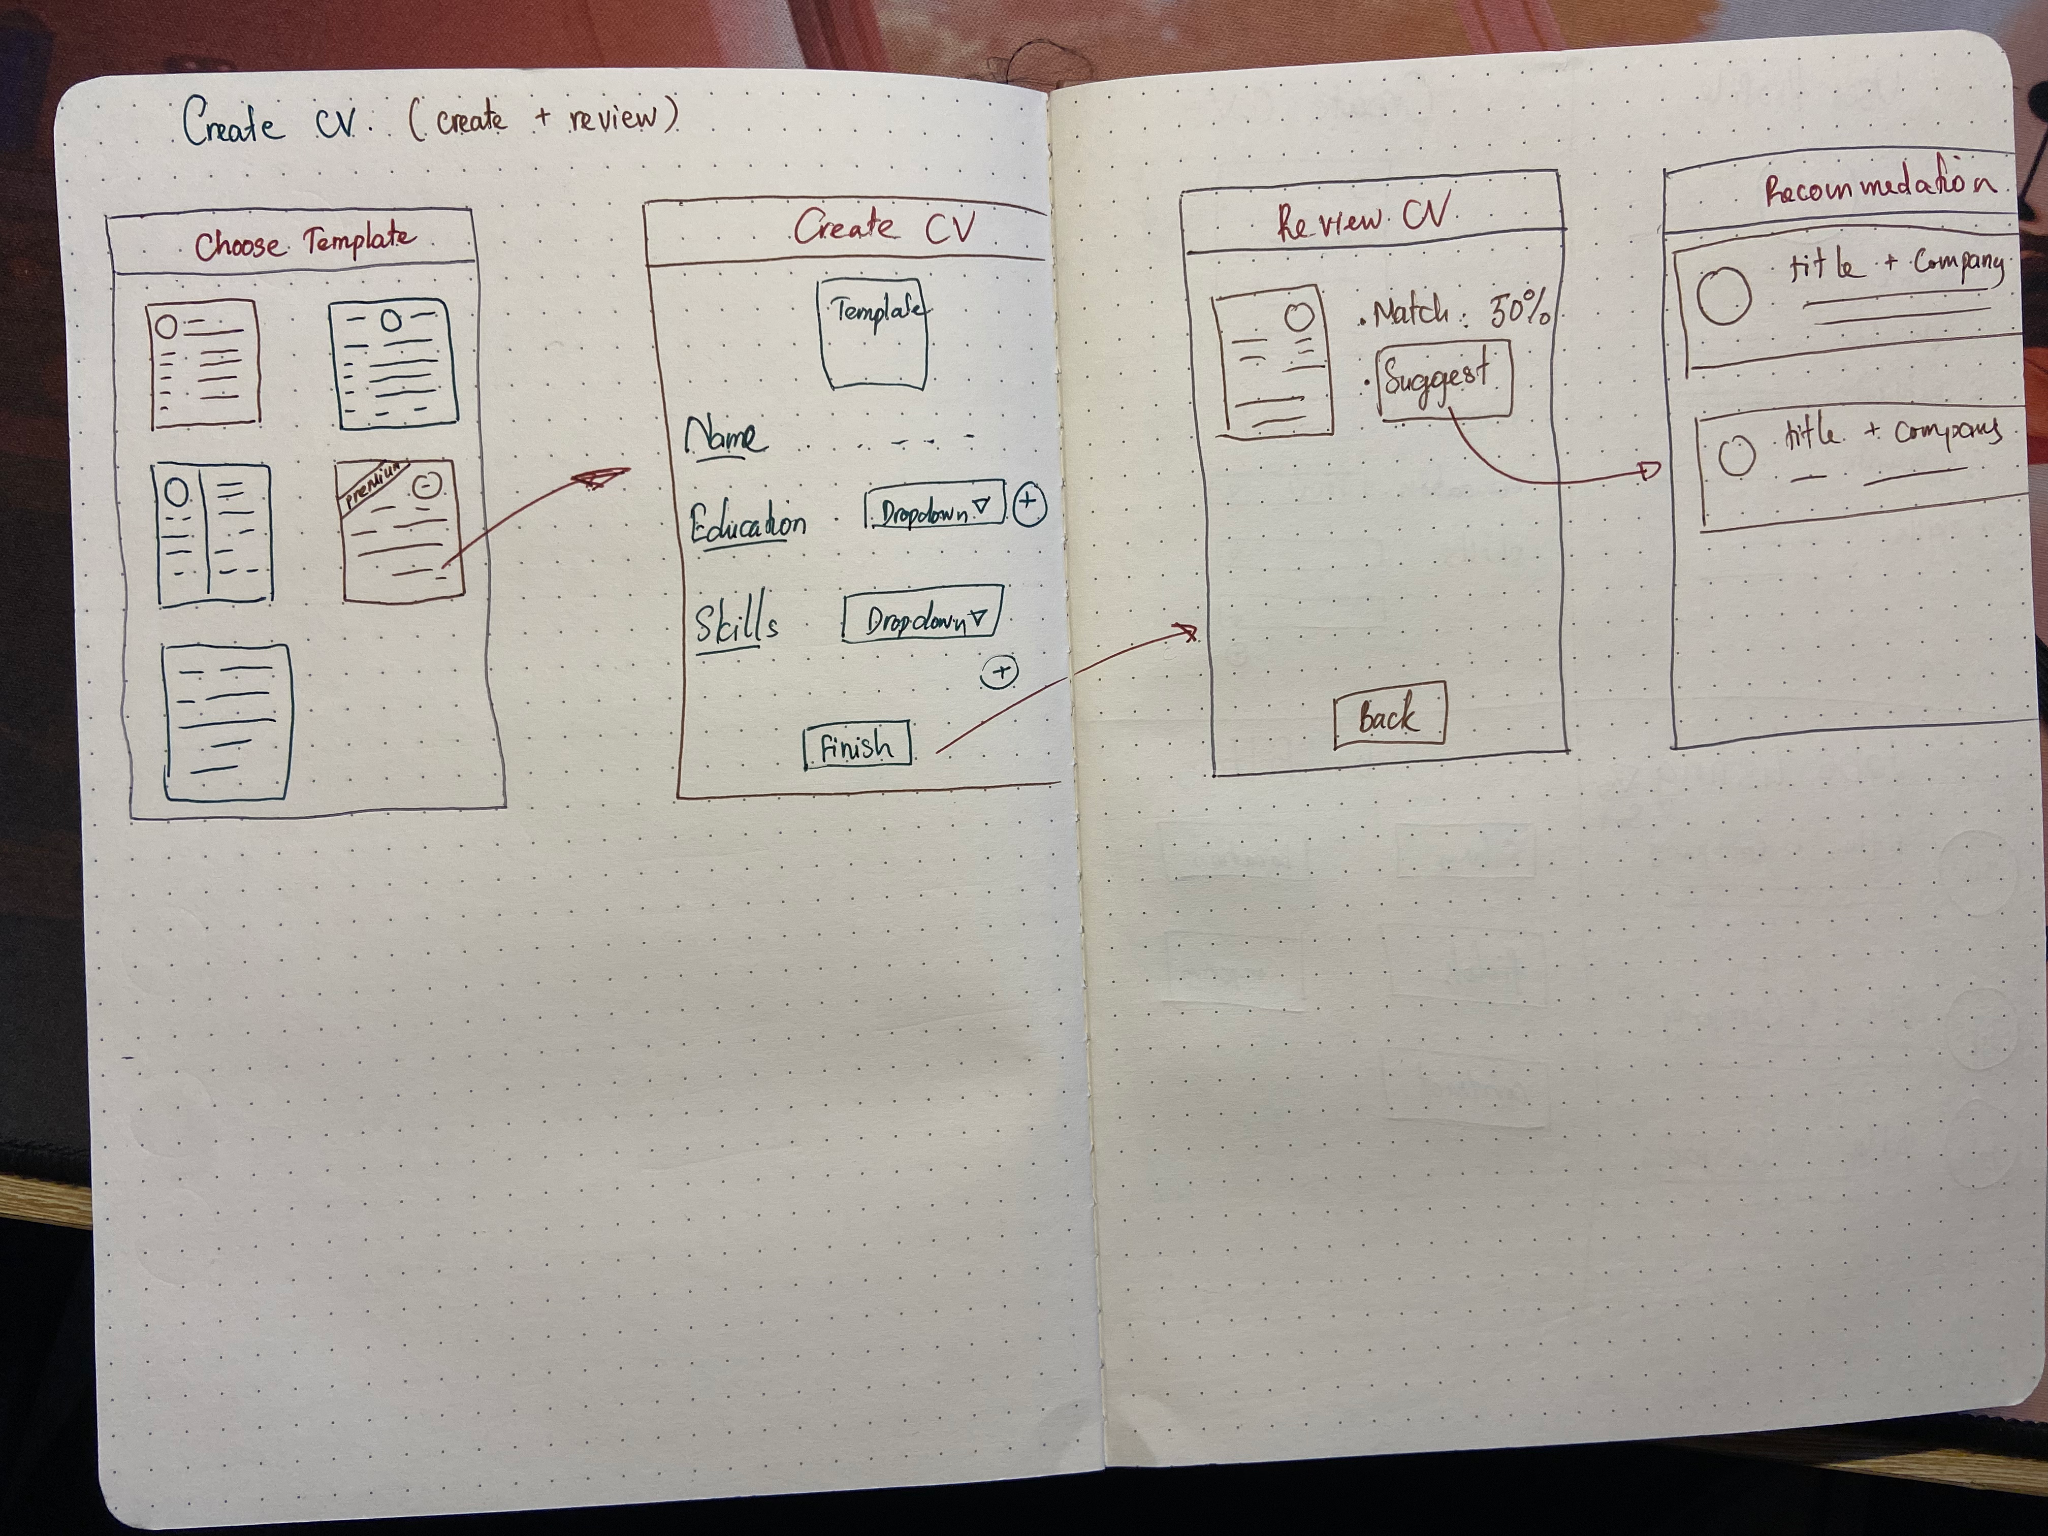 Create CV. (create + review)
Choose Template
Premium
Create CV
Template
Name
Education
Dropdown
+
Skills
Dropdown
+
Finish
Review CV
Match: 50%
Suggest
Back
Recommedation
title + Company
title + company